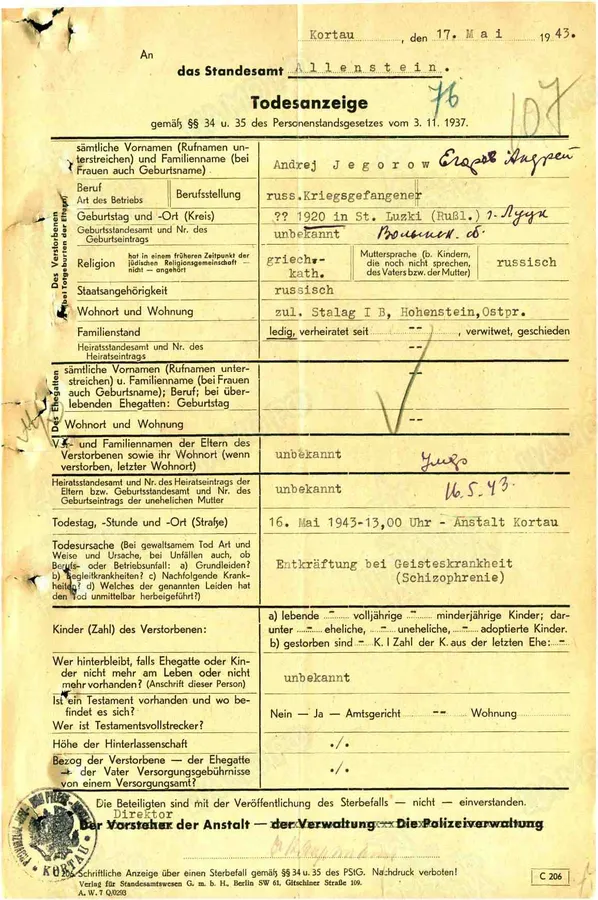 Kortau, den 17. Mai 1943.
An
das Standesamt Allenstein.
76
107
Todesanzeige
gemäß §§ 34 u. 35 des Personenstandsgesetzes vom 3. 11. 1937.
Des Verstorbenen
(bei Totgeburten der Eltern)
sämtliche Vornamen (Rufnamen un-
terstreichen) und Familienname (bei
Frauen auch Geburtsname)
Andrej Jegorow Егоров Андрей
Beruf
Art des Betriebs
Berufsstellung
russ.Kriegsgefangener
Geburtstag und -Ort (Kreis)
?? 1920 in St. Luzki (Rußl.) г. Луцк
Geburtsstandesamt und Nr. des
Geburtseintrags
unbekannt Волынск. о.
Religion
hat in einem früheren Zeitpunkt der
jüdischen Religionsgemeinschaft —
nicht — angehört
griech.-
kath.
Muttersprache (b. Kindern,
die noch nicht sprechen,
des Vaters bzw. der Mutter)
russisch
Staatsangehörigkeit
russisch
Wohnort und Wohnung
zul. Stalag I B, Hohenstein,Ostpr.
Familienstand
ledig, verheiratet seit -- , verwitwet, geschieden
Heiratsstandesamt und Nr. des
Heiratseintrags
--
Des Ehegatten
sämtliche Vornamen (Rufnamen unter-
streichen) u. Familienname (bei Frauen
auch Geburtsname); Beruf; bei über-
lebenden Ehegatten: Geburtstag
--
Wohnort und Wohnung
--
Vor- und Familiennamen der Eltern des
Verstorbenen sowie ihr Wohnort (wenn
verstorben, letzter Wohnort)
unbekannt
Умер
Heiratsstandesamt und Nr. des Heiratseintrags der
Eltern bzw. Geburtsstandesamt und Nr. des
Geburtseintrags der unehelichen Mutter
unbekannt
16.5.43.
Todestag, -Stunde und -Ort (Straße)
16. Mai 1943-13,00 Uhr - Anstalt Kortau
Todesursache (Bei gewaltsamem Tod Art und
Weise und Ursache, bei Unfällen auch, ob
Berufs- oder Betriebsunfall: a) Grundleiden?
b) Begleitkrankheiten? c) Nachfolgende Krank-
heiten? d) Welches der genannten Leiden hat
den Tod unmittelbar herbeigeführt?)
Entkräftung bei Geisteskrankheit
(Schizophrenie)
Kinder (Zahl) des Verstorbenen:
a) lebende - volljährige - minderjährige Kinder; dar-
unter - eheliche, - uneheliche, - adoptierte Kinder.
b) gestorben sind - K. I Zahl der K. aus der letzten Ehe: -
Wer hinterbleibt, falls Ehegatte oder Kin-
der nicht mehr am Leben oder nicht
mehr vorhanden? (Anschrift dieser Person)
unbekannt
Ist ein Testament vorhanden und wo be-
findet es sich?
Wer ist Testamentsvollstrecker?
Nein — Ja — Amtsgericht -- Wohnung
Höhe der Hinterlassenschaft
./.
Bezog der Verstorbene — der Ehegatte
— der Vater Versorgungsgebührnisse
von einem Versorgungsamt?
./.
Die Beteiligten sind mit der Veröffentlichung des Sterbefalls — nicht — einverstanden.
Direktor
Der Vorsteher der Anstalt — der Verwaltung — Die Polizeiverwaltung
KORTAU
206 Schriftliche Anzeige über einen Sterbefall gemäß §§ 34 u. 35 des PStG. Nachdruck verboten!
Verlag für Standesamtswesen G. m. b. H., Berlin SW 61, Gitschiner Straße 109.
A. W. 7 Q/0293
C 206